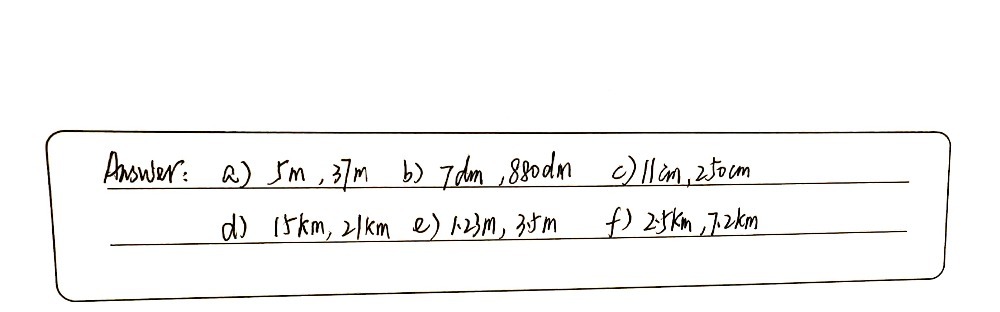 Answer: a) 5m, 37m b) 7dm, 880dm c) 11cm, 250cm
d) 15km, 21km e) 1.23m, 3.5m f) 2.5km, 7.2km